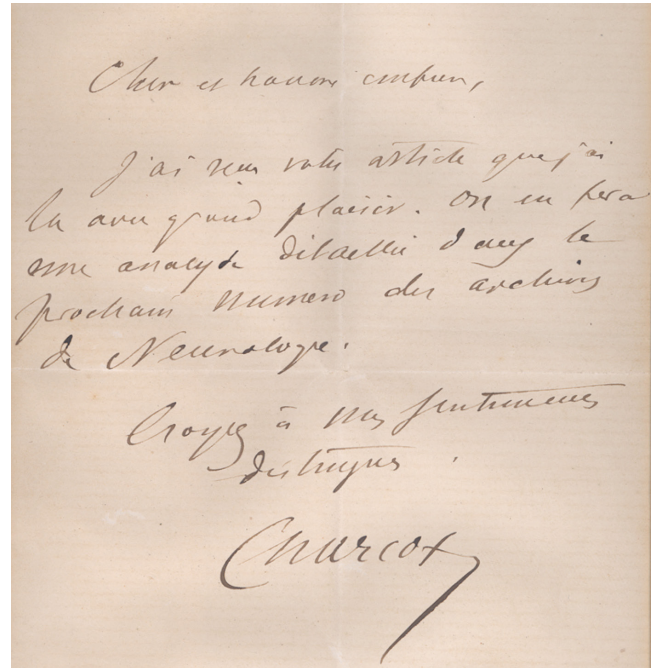 Cher et honoré confrère,
J'ai reçu votre article que j'ai
lu avec grand plaisir. On en fera
une analyse détaillée dans le
prochain numéro des archives
de Neurologie.
Croyez à mes sentiments
distingués.
Charcot